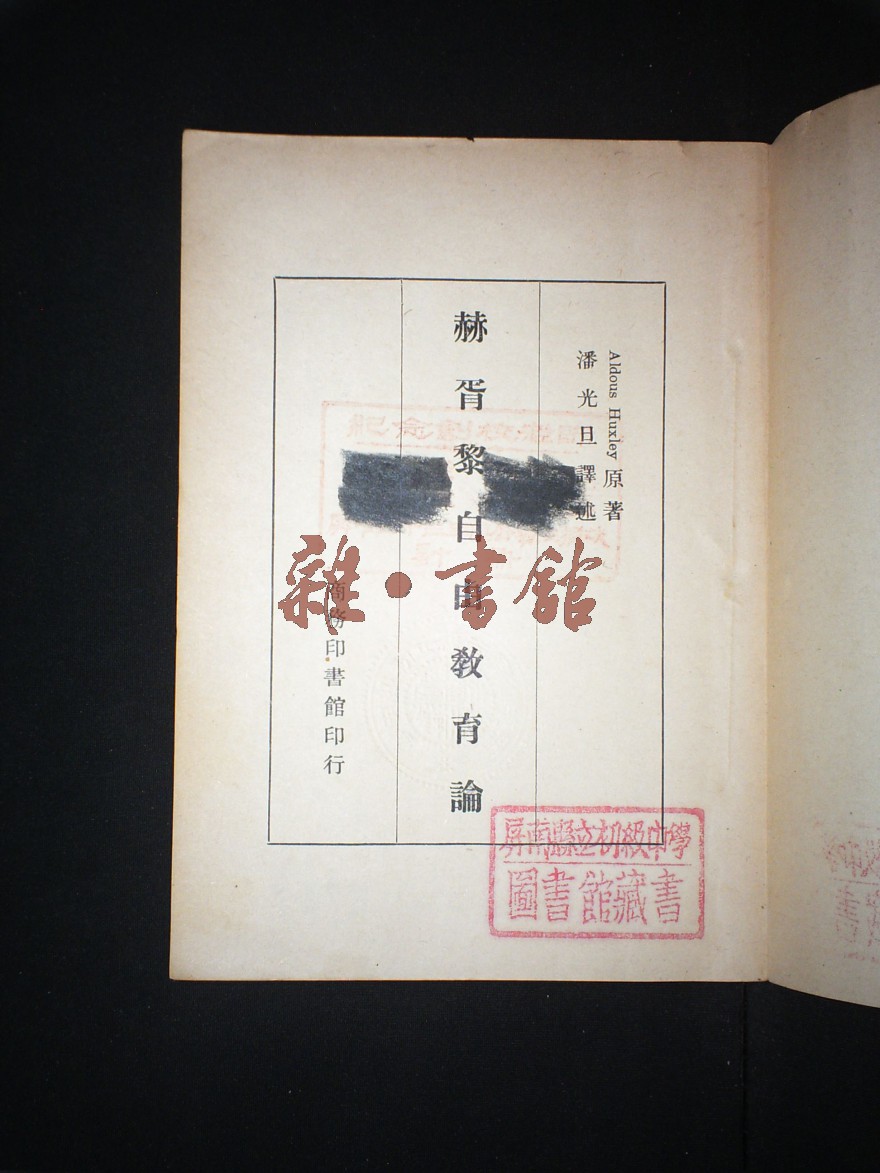 Aldous Huxley 原著
潘光旦譯述
赫胥黎自由教育論
商務印書館印行
雜·書館
屏南縣立初級中學
圖書館藏書